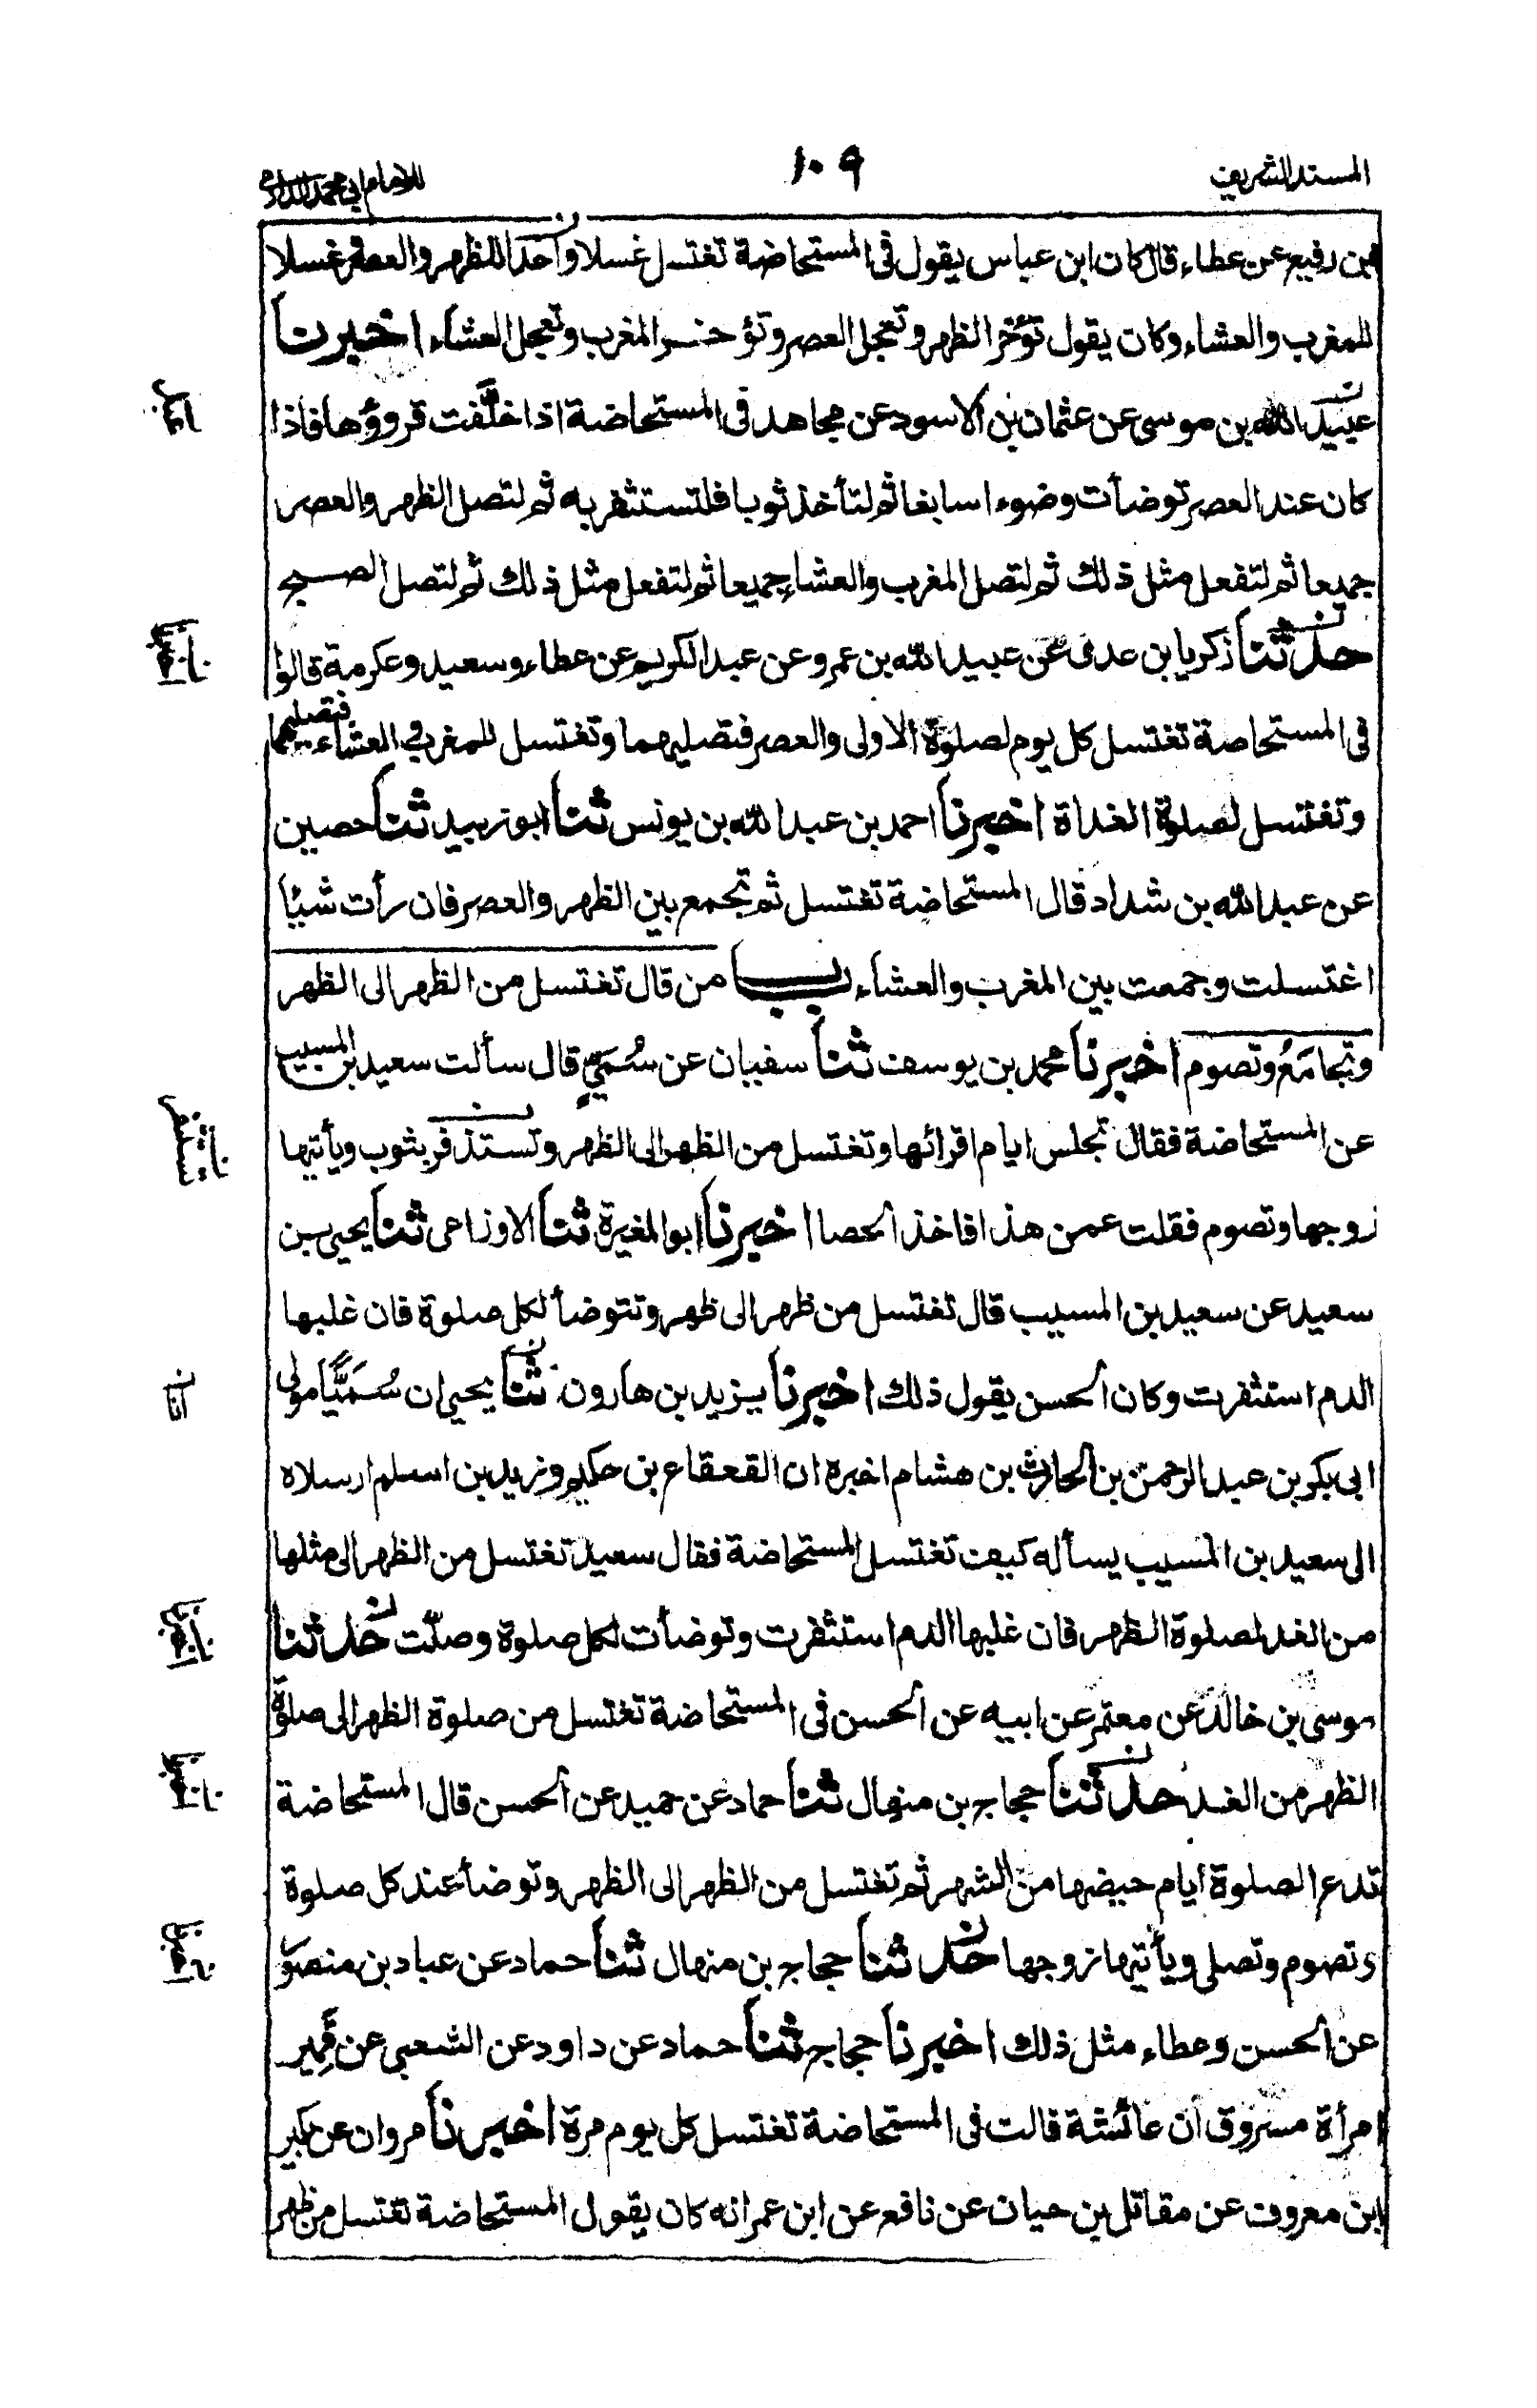 المسند الشريف
١٠٩
للامام ابي محمد الدارمي
بن رفيع عن عطاء قال كان ابن عباس يقول في المستحاضة تغتسل غسلا واحدا للظهر والعصر وغسلا
للمغرب والعشاء وكان يقول تؤخر الظهر وتعجل العصر وتؤخر المغرب وتعجل العشاء اخبرنا
عبيد الله بن موسى عن عثمان بن الاسود عن مجاهد في المستحاضة اذا خلّفت قروؤها فاذا
كان عند العصر توضأت وضوءا سابغا ثم لتأخذ ثوبا فلتستثفر به ثم لتصل الظهر والعصر
جميعا ثم لتفعل مثل ذلك ثم لتصل المغرب والعشاء جميعا ثم لتفعل مثل ذلك ثم لتصل الصبح
حدثنا زكريا بن عدى عن عبيد الله بن عمرو عن عبد الكريم عن عطاء وسعيد وعكرمة قالوا
في المستحاضة تغتسل كل يوم لصلوة الاولى والعصر فتصليهما وتغتسل للمغرب و العشاء فتصليهما
وتغتسل لصلوة الغداة اخبرنا احمد بن عبد الله بن يونس ثنا ابو زبيد ثنا حصين
عن عبد الله بن شداد قال المستحاضة تغتسل ثم تجمع بين الظهر والعصر فان رأت شيئا
اغتسلت وجمعت بين المغرب والعشاء باب من قال تغتسل من الظهر الى الظهر
وتجامَعُ وتصوم اخبرنا محمد بن يوسف ثنا سفيان عن سُمَيٍّ قال سألت سعيد بن المسيب
عن المستحاضة فقال تجلس ايام اقرائها وتغتسل من الظهر الى الظهر وتستذفر بثوب ويأتيها
زوجها وتصوم فقلت عمن هذا فاخذ الحصا اخبرنا ابو المغيرة ثنا الاوزاعى ثنا يحيى بن
سعيد عن سعيد بن المسيب قال تغتسل من ظهر الى ظهر وتتوضأ لكل صلوة فان غلبها
الدم استثفرت وكان الحسن يقول ذلك اخبرنا يزيد بن هارون ثنا يحيى ان سُمَيًّا مولى
انا
ابى بكر بن عبد الرحمن بن الحارث بن هشام اخبره ان القعقاع بن حكيم وزيد بن اسلم ارسلاه
الى سعيد بن المسيب يسأله كيف تغتسل المستحاضة فقال سعيد تغتسل من الظهر الى مثلها
من الغد لصلوة الظهر فان غلبها الدم استثفرت وتوضأت لكل صلوة وصلّت حدثنا
موسى بن خالد عن معتمر عن ابيه عن الحسن في المستحاضة تغتسل من صلوة الظهر الى صلوة
الظهر من الغد حدثنا حجاج بن منهال ثنا حماد عن حميد عن الحسن قال المستحاضة
تدع الصلوة أيام حيضها من الشهر ثم تغتسل من الظهر الى الظهر وتوضأ عند كل صلوة
وتصوم وتصلى ويأتيها زوجها حدثنا حجاج بن منهال ثنا حماد عن عباد بن منصور
عن الحسن وعطاء مثل ذلك اخبرنا حجاج ثنا حماد عن داود عن الشعبي عن قَمِير
امرأة مسروق ان عائشة قالت في المستحاضة تغتسل كل يوم مرة اخبرنا مروان عن بكير
ابن معروف عن مقاتل بن حيان عن نافع عن ابن عمر انه كان يقول المستحاضة تغتسل من ظهر